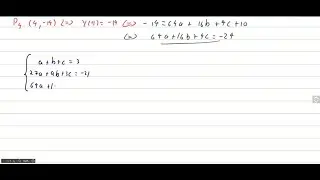 P₄ (4, -14) ⇔ y(4) = -14 ⇔ -14 = 64a + 16b + 4c + 10
⇔ 64a + 16b + 4c = -24
a + b + c = 3
27a + 9b + 3c = -21
64a + 1